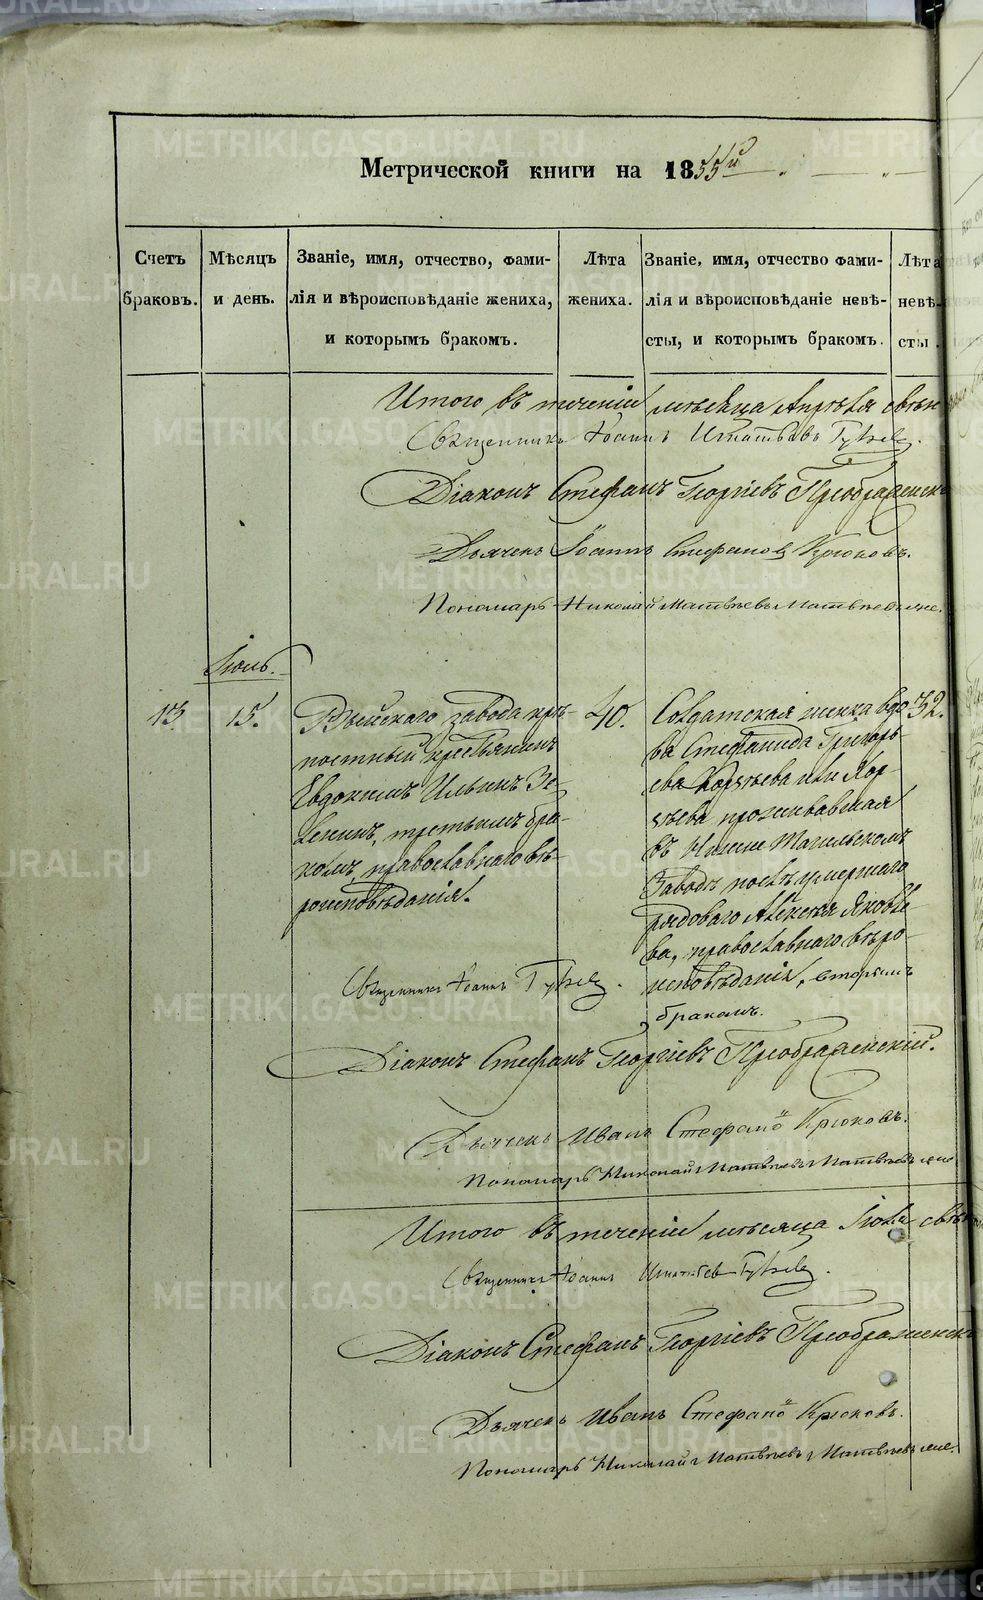 Метрической книги на 1855й
Счетъ браковъ.
Мѣсяцъ и день.
Званіе, имя, отчество, фами-
лія и вѣроисповѣданіе жениха,
и которымъ бракомъ.
Лѣта жениха.
Званіе, имя, отчество фами-
лія и вѣроисповѣданіе невѣ-
сты, и которымъ бракомъ.
Лѣта
невѣ-
сты.
Итого въ теченіи мѣсяца Апрѣля
Священникъ Іоаннъ Игнатьевъ
Діаконъ Стефанъ Георгіевъ Преображенск
Дьячекъ Іоаннъ Стефановъ Крюковъ.
Пономарь Николай Матвѣевъ
Іюль.
13 15.
Выйскаго завода крѣ-
постный крестьянинъ
Евдокимъ Ильинъ Зе-
ленинъ, третьимъ бра-
комъ, православнаго вѣ-
роисповѣданія.
40.
Солдатская жинка вдо-
ва Стефанида Григорь-
ева
проживавшая
въ Нижне Тагильскомъ
Заводѣ послѣ умершаго
рядоваго Алексѣя Яковле-
ва, православнаго вѣро-
исповѣданія, вторымъ
бракомъ.
32.
Священникъ Іоаннъ
Діаконъ Стефанъ Георгіевъ Преображенскій.
Дьячекъ Иванъ Стефановъ Крюковъ.
Пономарь Николай Матвѣевъ
Итого въ теченіи мѣсяца Іюля
Священникъ Іоаннъ Игнатьевъ
Діаконъ Стефанъ Георгіевъ Преображенск
Дьячекъ Иванъ Стефановъ Крюковъ.
Пономарь Николай Матвѣевъ
METRIKI.GASO-URAL.RU